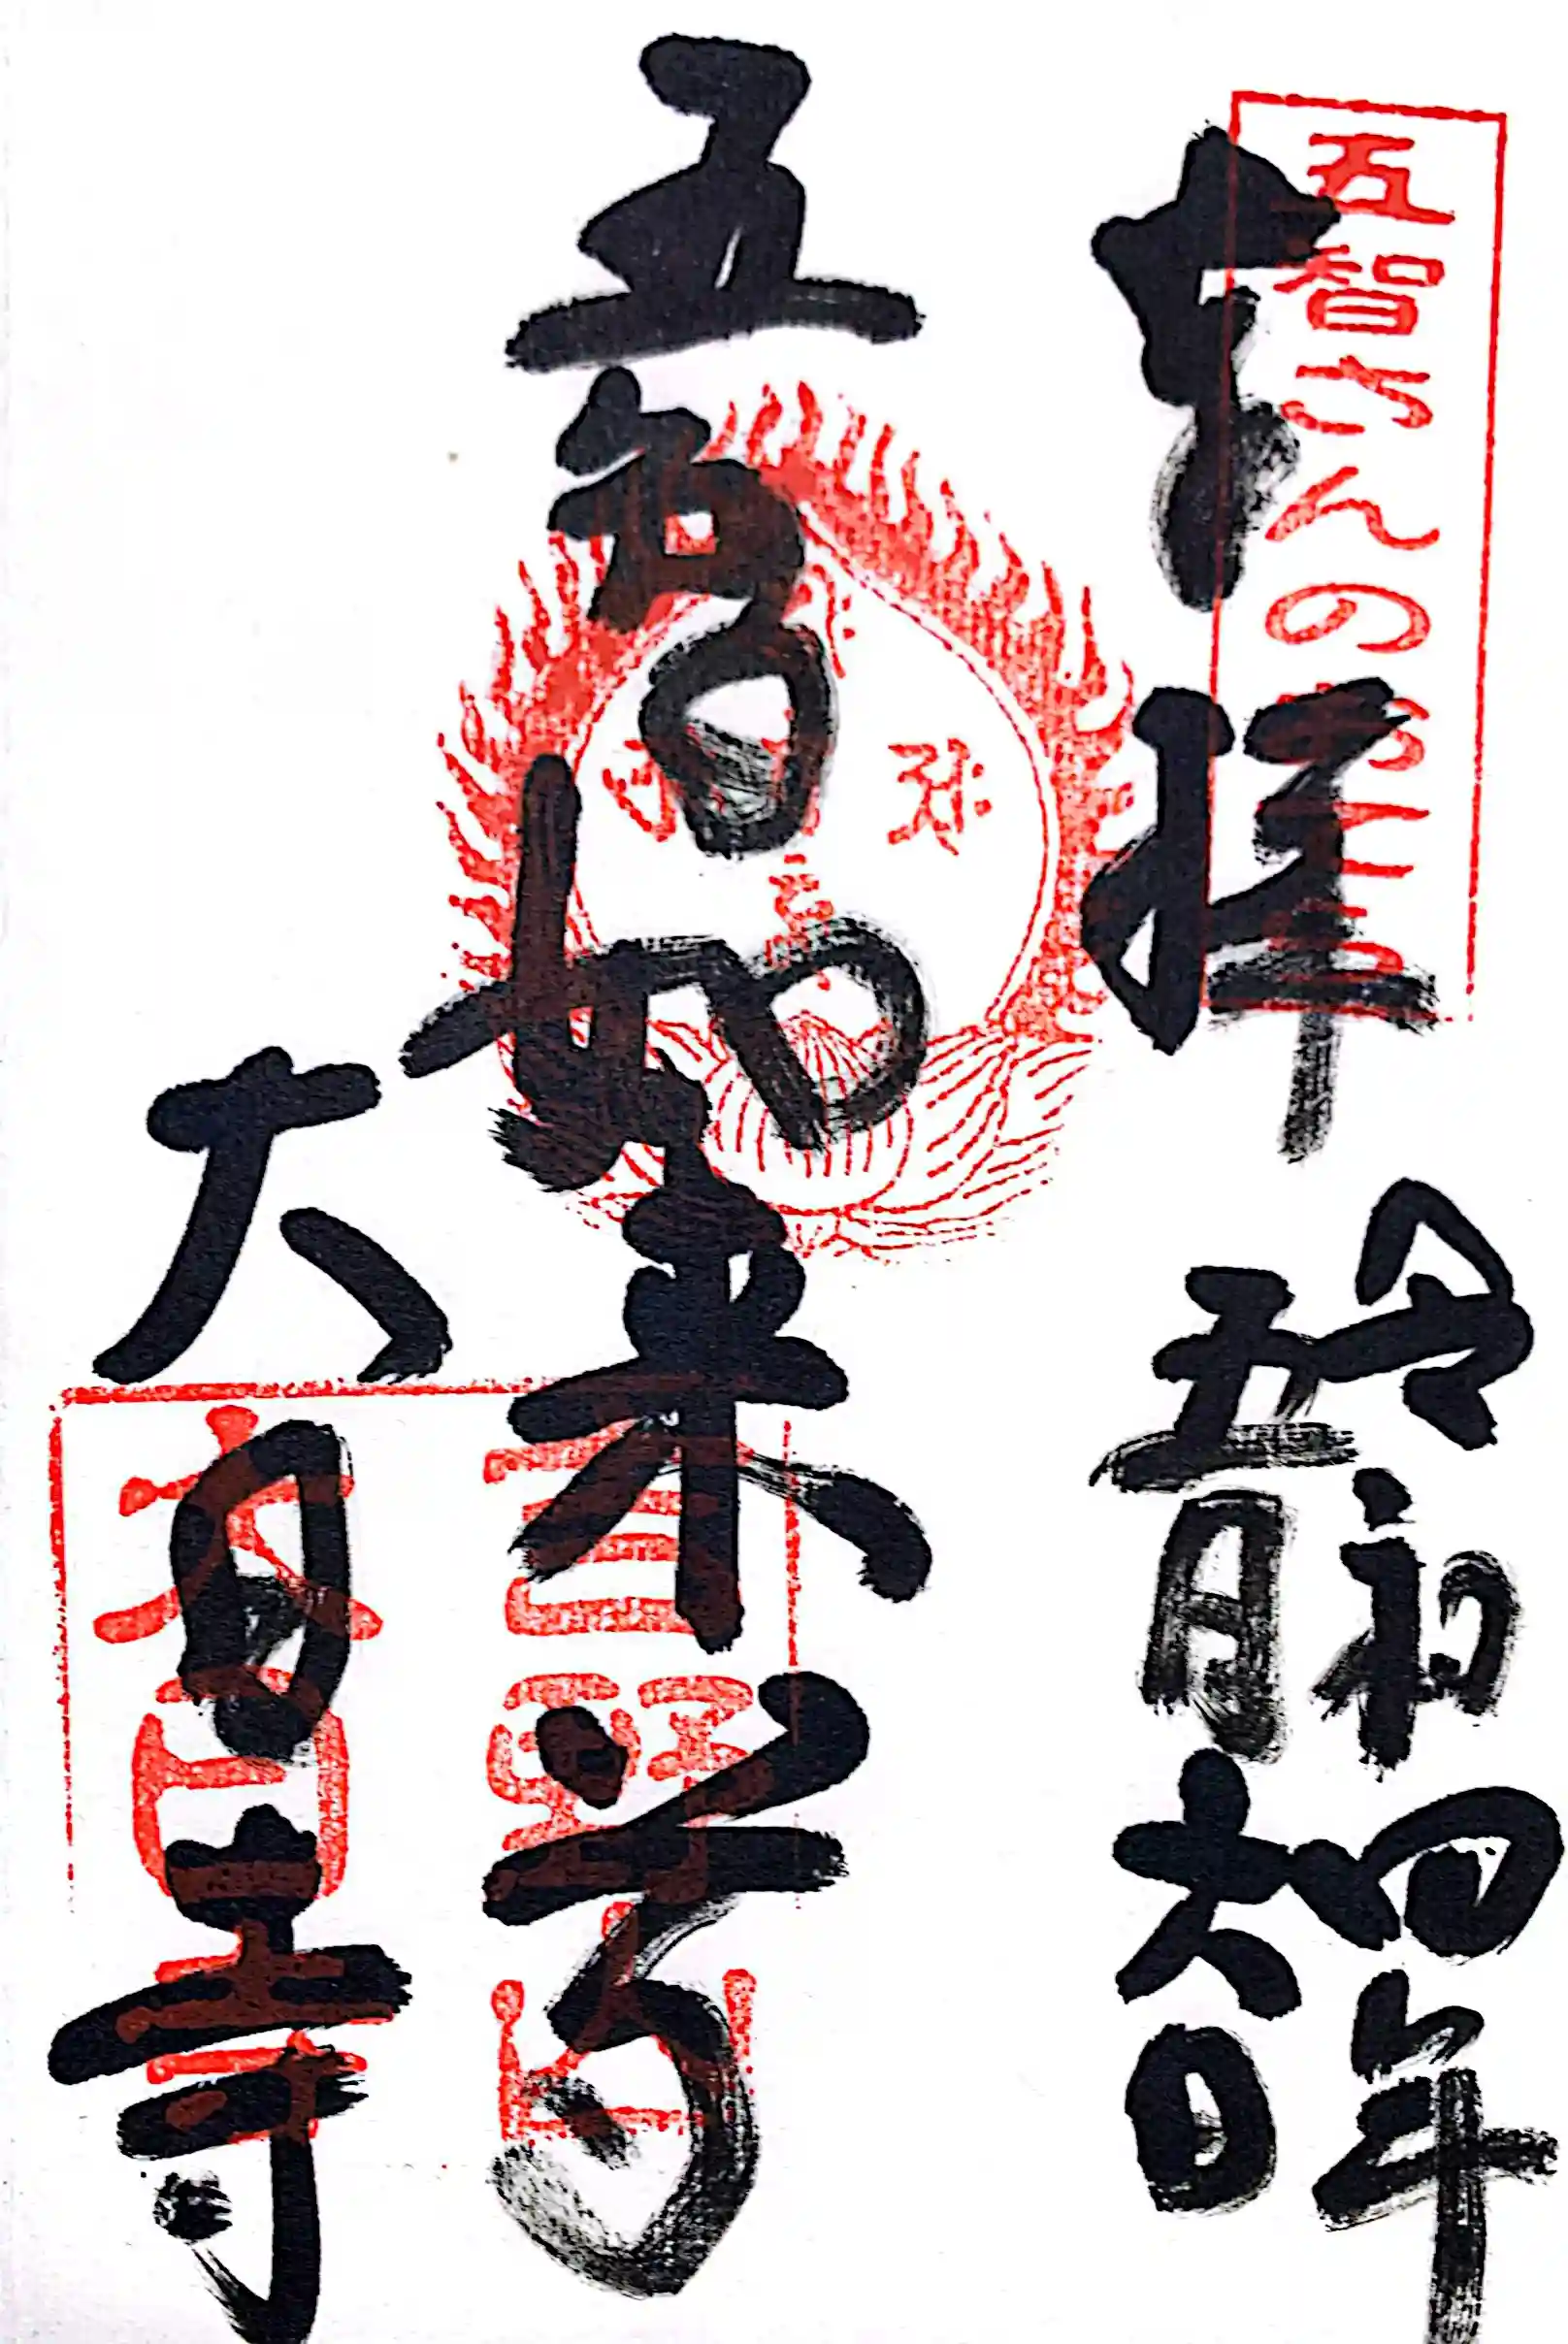 五智さんの
奉拝
令和四年
五月六日
五智如来
大日寺
大日寺